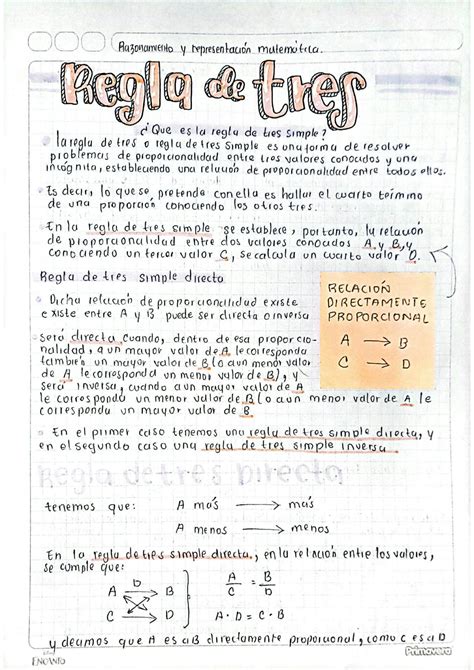 Razonamiento y representación matemática.
Regla de tres
¿Que es la regla de tres simple?
la regla de tres o regla de tres simple es una forma de resolver
problemas de proporcionalidad entre tres valores conocidos y una
incógnita, estableciendo una relación de proporcionalidad entre todos ellos.
Es decir, lo que se pretende con ella es hallar el cuarto término
de una proporción conociendo los otros tres.
En la regla de tres simple se establece, portanto, la relación
de proporcionalidad entre dos valores conocidos A y B, y
conociendo un tercer valor C, se calcula un cuarto valor D.
Regla de tres simple directa
Dicha relación de proporcionalidad existe
e xiste entre A y B puede ser directa o inversa
RELACIÓN
DIRECTAMENTE
PROPORCIONAL
A → B
C → D
será directa cuando, dentro de esa proporcio-
nalidad, a un mayor valor de A le corresponda
también un mayor valor de B (o a un menor valor
de A le corresponda un menor valor de B), y
será inversa, cuando a un mayor valor de A
le corresponda un menor valor de B (o a un menor valor de A le
corresponda un mayor valor de B
En el primer caso tenemos una regla de tres simple directa, y
en el segundo caso una regla de tres simple inversa
Regla de tres Directa
tenemos que: A más → más
A menos → menos
En la regla de tres simple directa, en la relación entre los valores,
se cumple que:
D
A → B
C → D
A/C = B/D
A·D = C·B
y decimos que A es a B directamente proporcional, como C es a D
Primavera